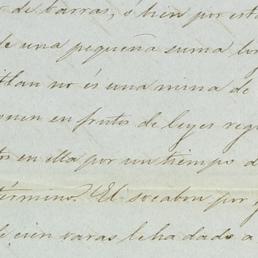 de barras, o bien por este
de una pequeña suma
no és una mina de
ponen en frutos de leyes reg
en ella por un tiempo d
término. El socabon por
cien varas le ha dado a